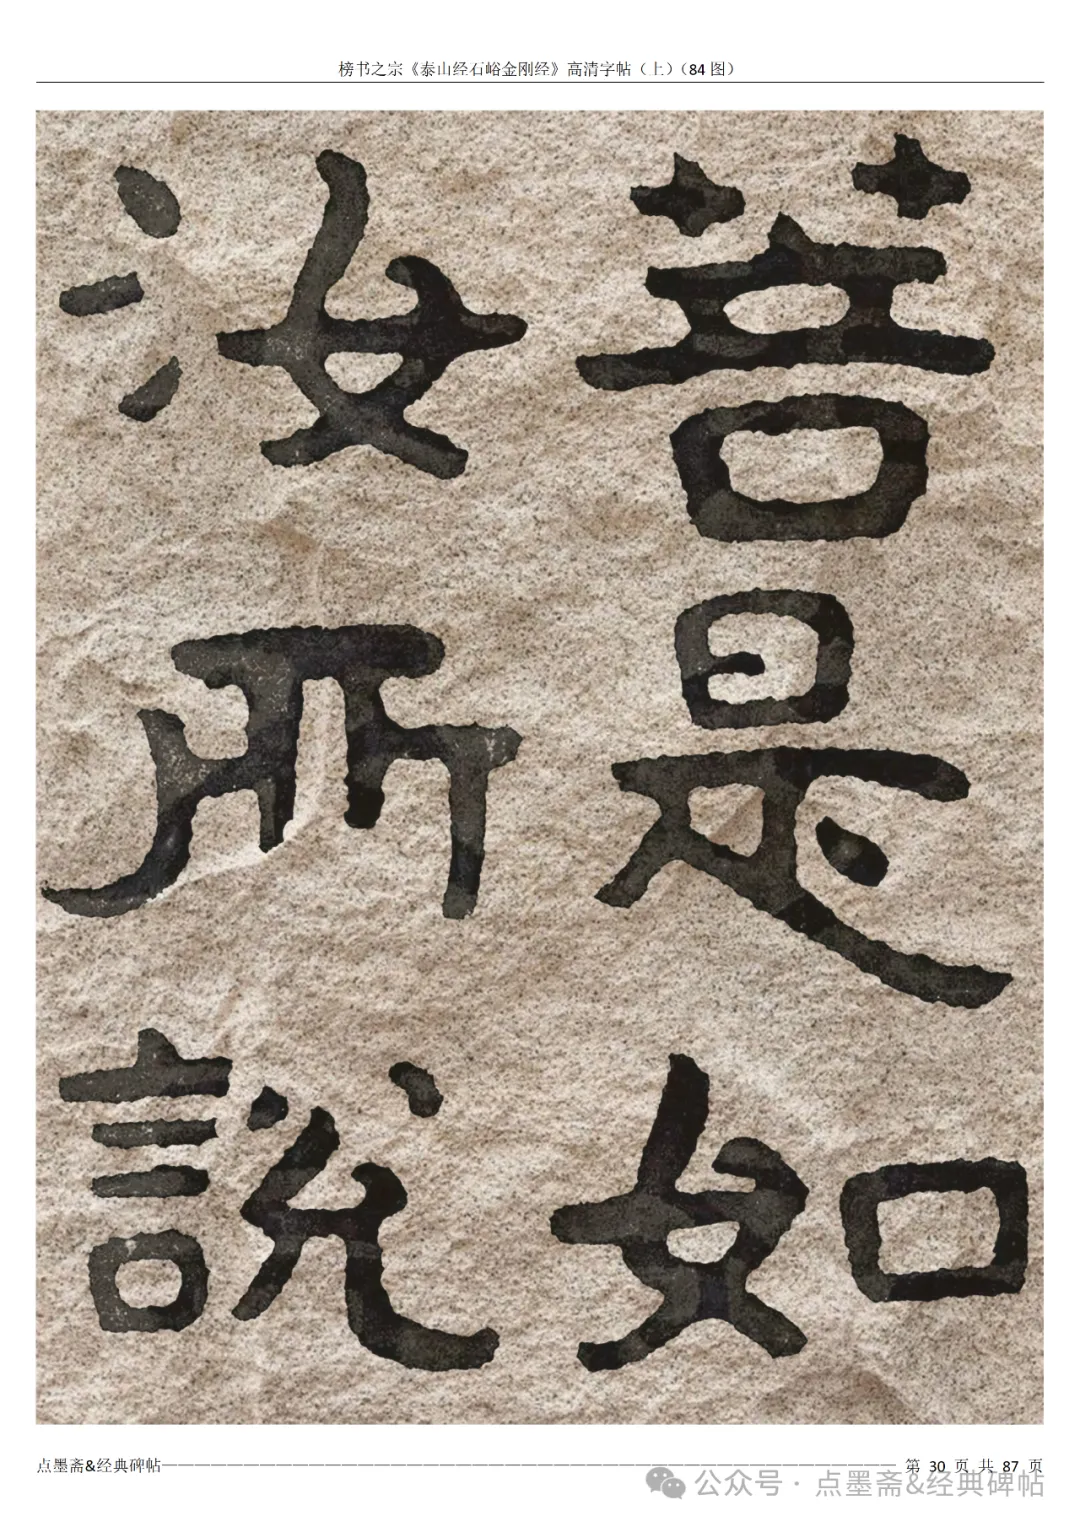 榜书之宗《泰山经石峪金刚经》高清字帖（上）（84 图）
菩是如
汝所說
点墨斋&经典碑帖————————————————第 30 页 共 87 页
公众号 · 点墨斋&经典碑帖